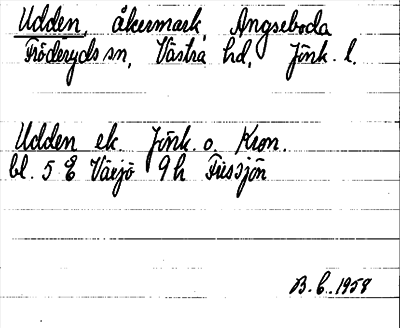 Udden, åkermark, Angseboda
Fröderyds sn, Västra hd, Jönk. l.
Udden ek. Jönk. o. Kron.
bl. 5 E Växjö 9h Fissjön
B. C. 1958